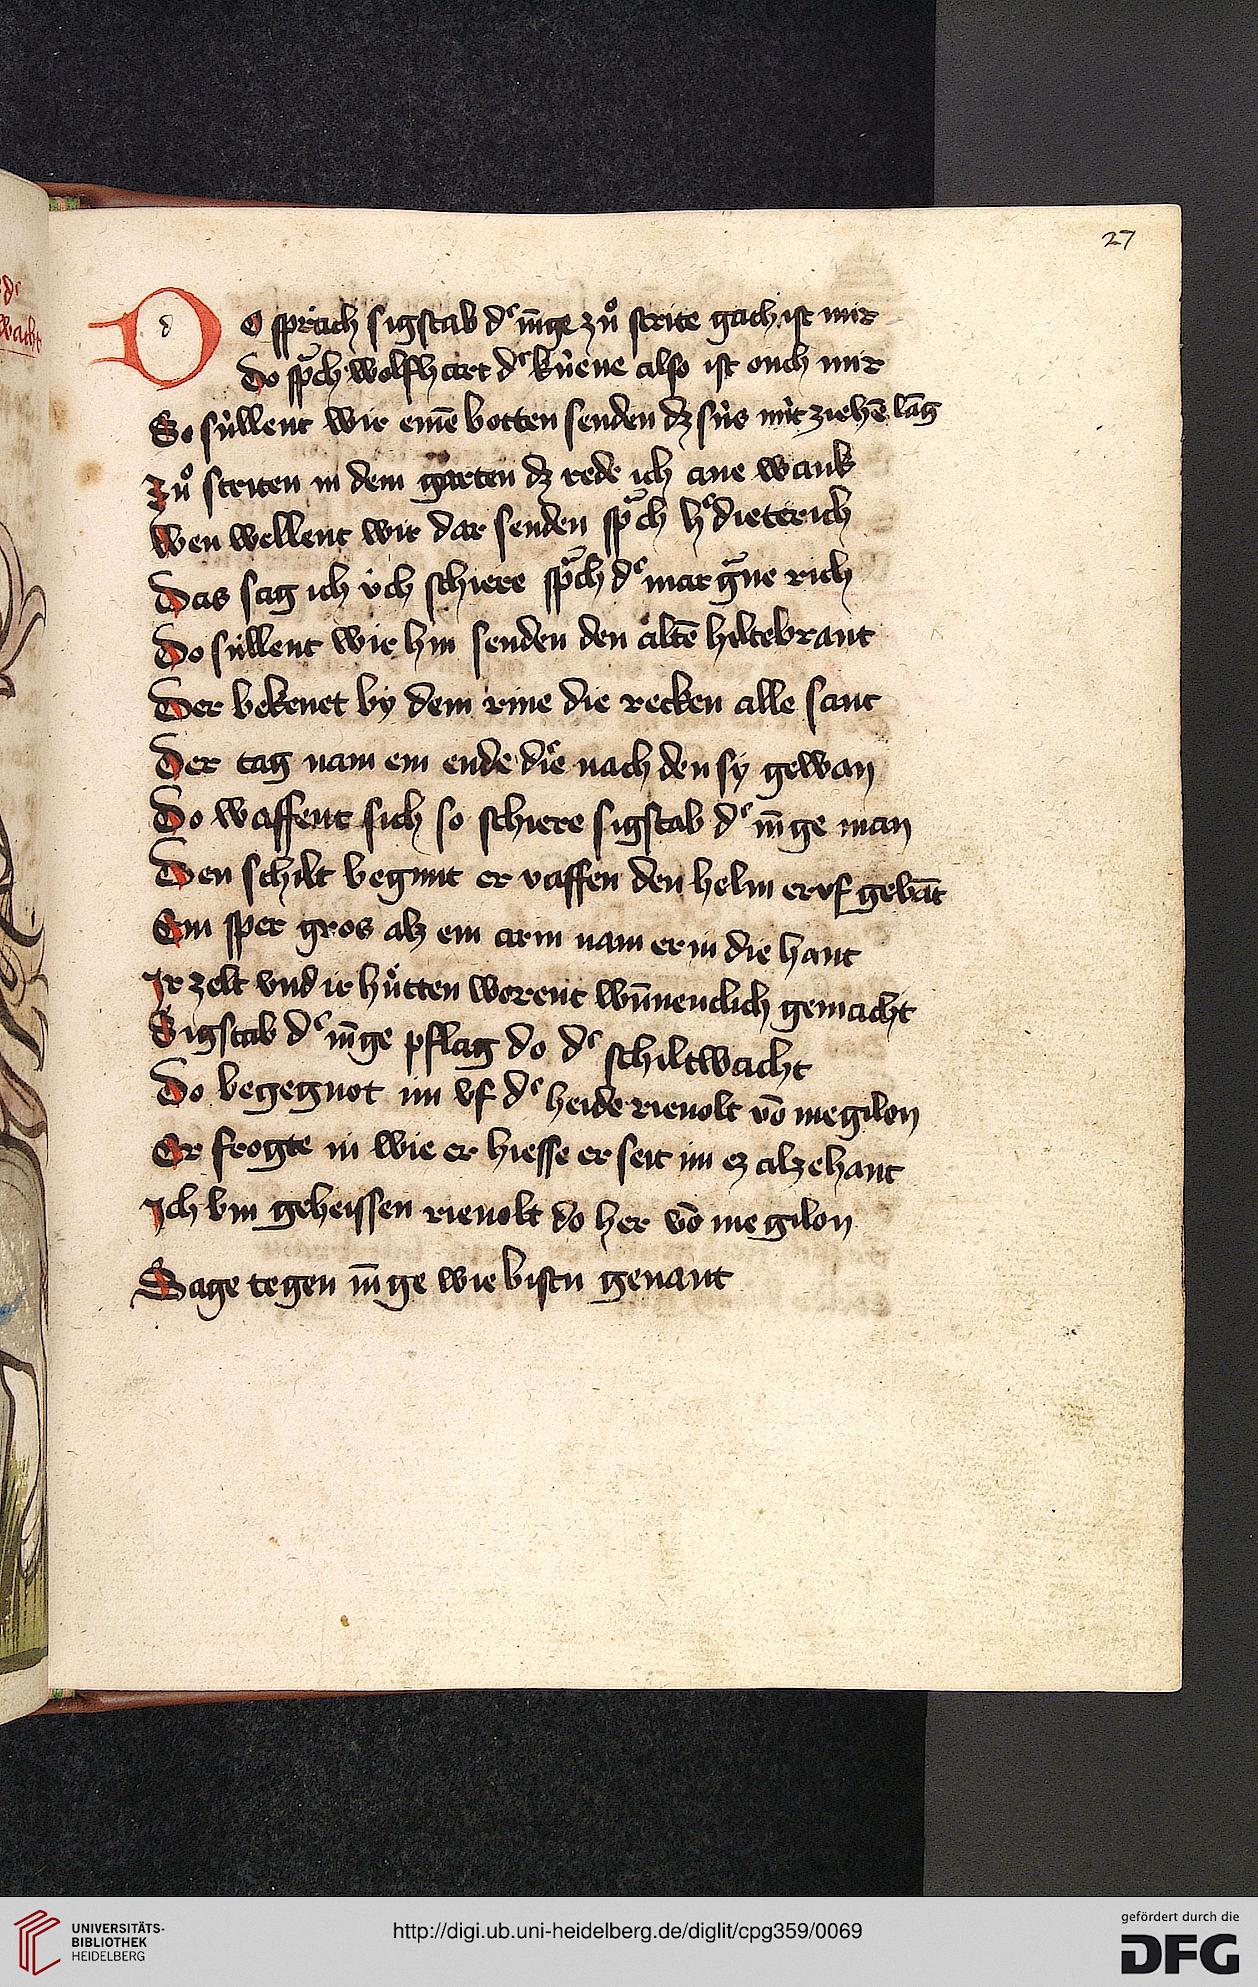 27
DO sprach sigstab dˢ iūge zuͦ strite gach ist mir
Do spᵃch wolfhart dˢ kuͤene also ist ouch mir
So suͤllent wir einē botten senden dz suͤs nuͤt ziehe̅ la̅g
Zuͦ striten in dem garten dz rede ich ane wank
Wen wellent wir dar senden spᵃch hˢ dieterich
Das sag ich uͤch schiere spᵃch dˢ margᵃue rich
Do suͤllent wir hin senden den alte̅ hiltebrant
Der bekenet by dem rine die recken alle sant
Der tag nam ein ende die nach den sy gewan
Do waffent sich so schiere sigstab dˢ iūge man
Den schilt begunt er vassen den helm er vf geba̅t
Ein sper gros alz ein arm nam er in die hant
Ir zelt vnd ir huͤtten worent wu̅nenclich gemacht
Sigstab dˢ iūge pflag do dˢ schiltwacht
Do begegnot im vf dˢ heide rienolt vo̅ megilon
Er frogte in wie er hiesse er seit im ez alzehant
Ich bin geheissen rienolt do her vo̅ megilon
Sage tegen iūge wie bistu genant
dˢ
wacht
UNIVERSITÄTS-
BIBLIOTHEK
HEIDELBERG
http://digi.ub.uni-heidelberg.de/diglit/cpg359/0069
gefördert durch die
DFG